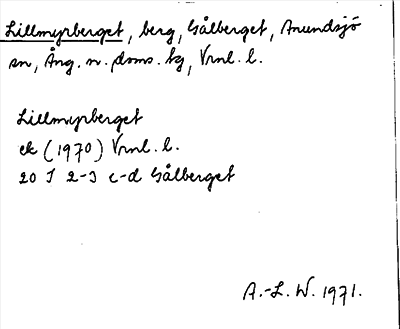 Lillmyrberget, berg, Gålberget, Anundsjö
sn, Ång. n. doms. tg, Vrnl. l.
Lillmyrberget
ek (1970) Vrnl. l.
20 J 2-3 c-d Gålberget
A.-L. W. 1971.